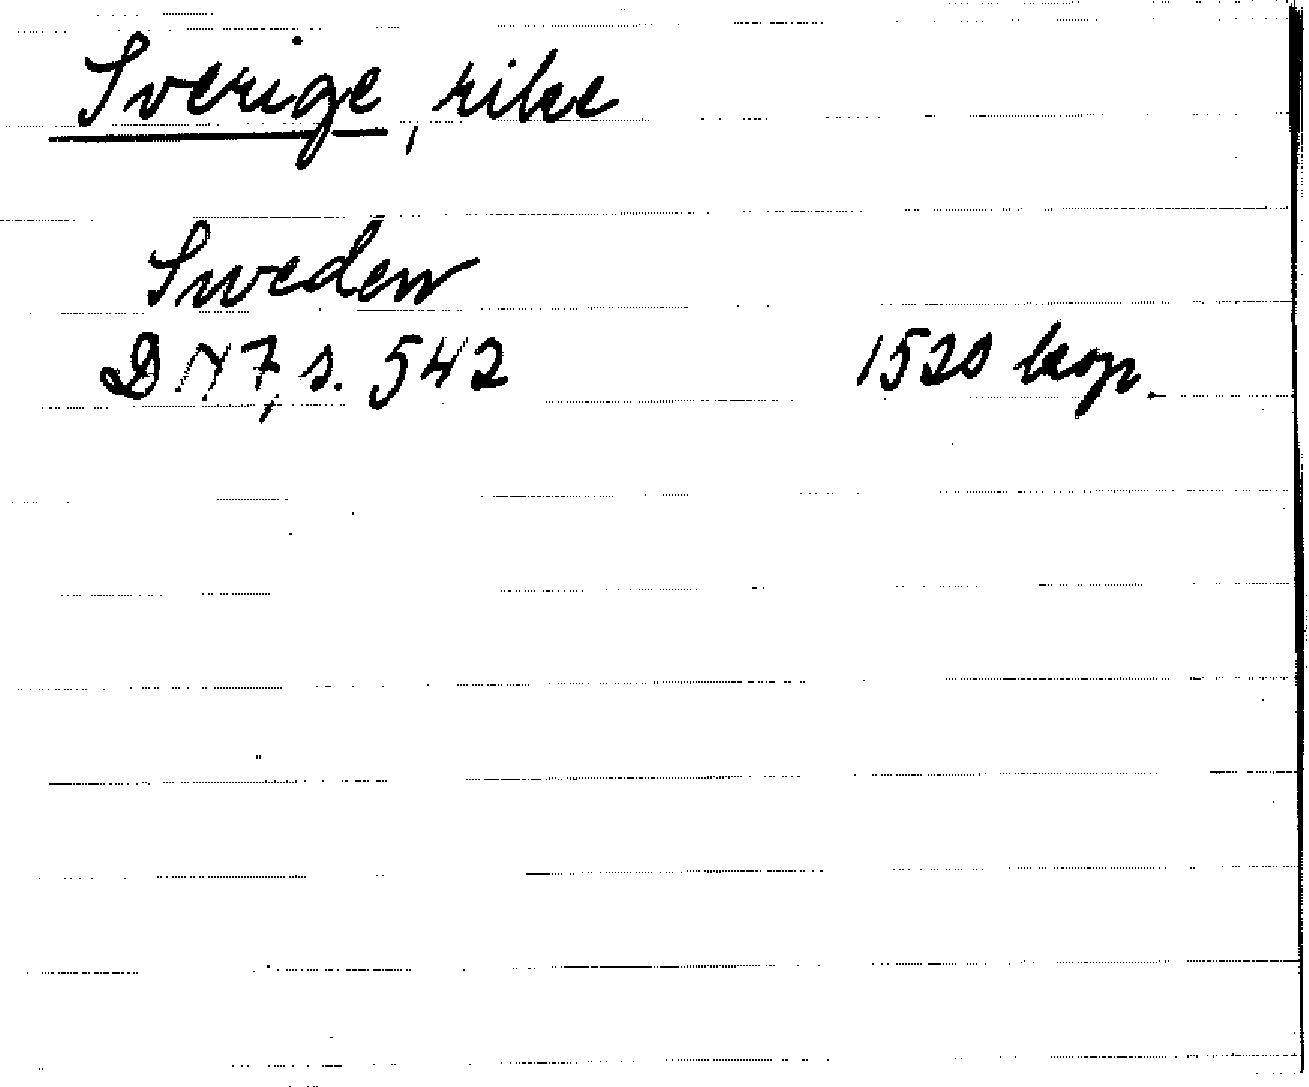 Sverige, rike
Sweden
DN 7, s. 542 1520 kop.